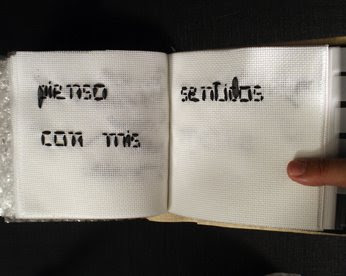 pienso
con mis
sentidos